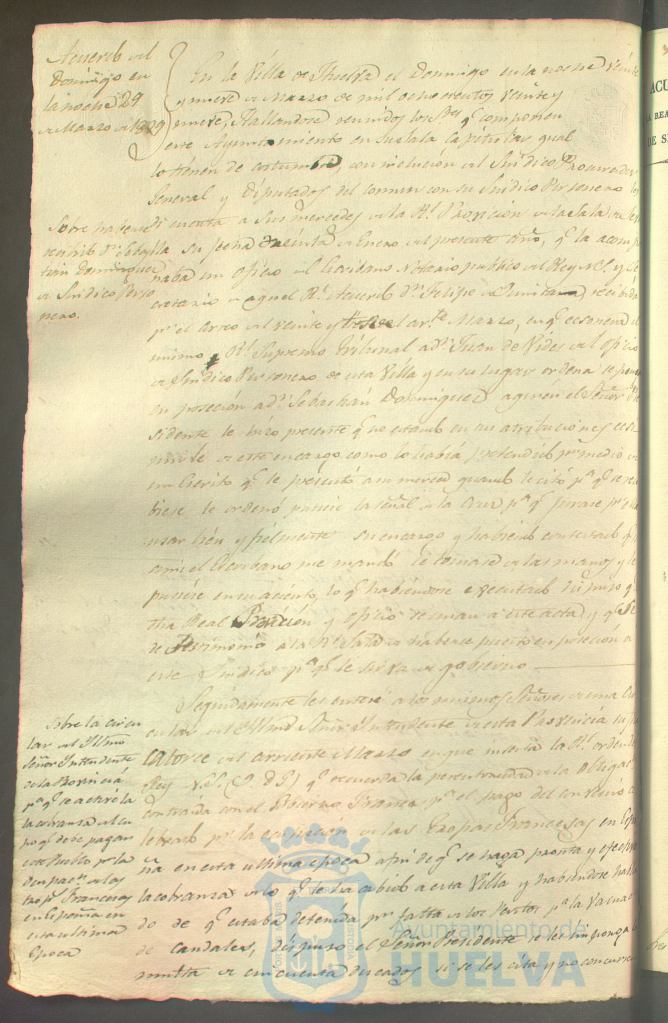 Acuerdo del
Domingo en
la noche 29
de Marzo de 1829
En la Villa de Huelva el Domingo en la noche veinte
y nueve de Marzo de mil ochocientos veinte y
nueve, Hallandose reunidos los Sres. q. componen
este Ayuntamiento en su Sala Capitular qual
lo tienen de costumbre, con inclucion del Sindico Procurador
General y Diputados del comun con su Sindico Personero
Sobre haberse
recibido dn. Sebastian
Dominguez
de Sindico Perso
nero.
di cuenta a Sus mercedes de la Rl. Provicion de la Sala
su fecha treinta de Enero del presente año, q. la acom
pañaba un oficio del Escribano Notario publico del Rey N.S. y Se
cretario de aquel Rl. Acuerdo Dn. Felipe de Quintana, recibida
pr. el correo del veinte y tres del corte. Marzo, en q. exonera el
mismo Rl. Supremo Tribunal a Dn. Juan de Vides del oficio
de Sindico Personero de esta Villa y en su lugar ordena se ponga
en posecion a Dn. Sebastian Dominguez, a quien el Señor Pre
sidente le hizo presente q. no estaba en sus atribuciones
de este encargo como lo habia pretendido pr. medio de
un Escrito q. le presentó a su merced quando le citó pa. q. se
le ordenó puciese la señal de la Cruz pa. q. jurase pr. ella
usar bien y fielmente su encargo y habiendo contestado q.
ami el Escribano me mandó le tomase de las manos y le
puciese en su aciento, lo q. habiendose executado dispuso q.
dha Real Provicion y oficio se unan a este acta y q. Se
de Testimonio a la Rl. Sala de haberse puesto en posecion a
este Sindico pa. q. le sirva de gobierno
Sobre la circu
lar del Illmo
Señor Intendente
de la Provincia
pa. q. se active la
cobranza del cu
po q. debe pagar
este Pueblo pr. la
de las
tropas Francesas
en España en
esta ultima
Epoca
Seguidamente les enteré a los mismos Señores de una Cir
cular del Illmo Señor Intendente de esta Provincia su fha
Catorce del corriente Marzo en que inserta la Rl. orden del
Rey N.S. (q. D. G.) q. recuerda la perentoriedad de la obligacion
contraida con el Gobierno Frances pr. el pago del convenio ce
lebrado pr. la ocupacion de las Tropas Francesas en Espa
ña en esta ultima epoca afin de q. se haga pronta y efectiva
la cobranza de lo q. le ha cabido a esta Villa y habiendose halla
do de q. estaba detenida pr. falta de los Peritos pa. la Valuacion
de caudales, dispuso el Señor Presidente se les imponga
multa de cincuenta ducados si se les cita y no concurren
Ayuntamiento de
HUELVA
ACU
REA
DE S